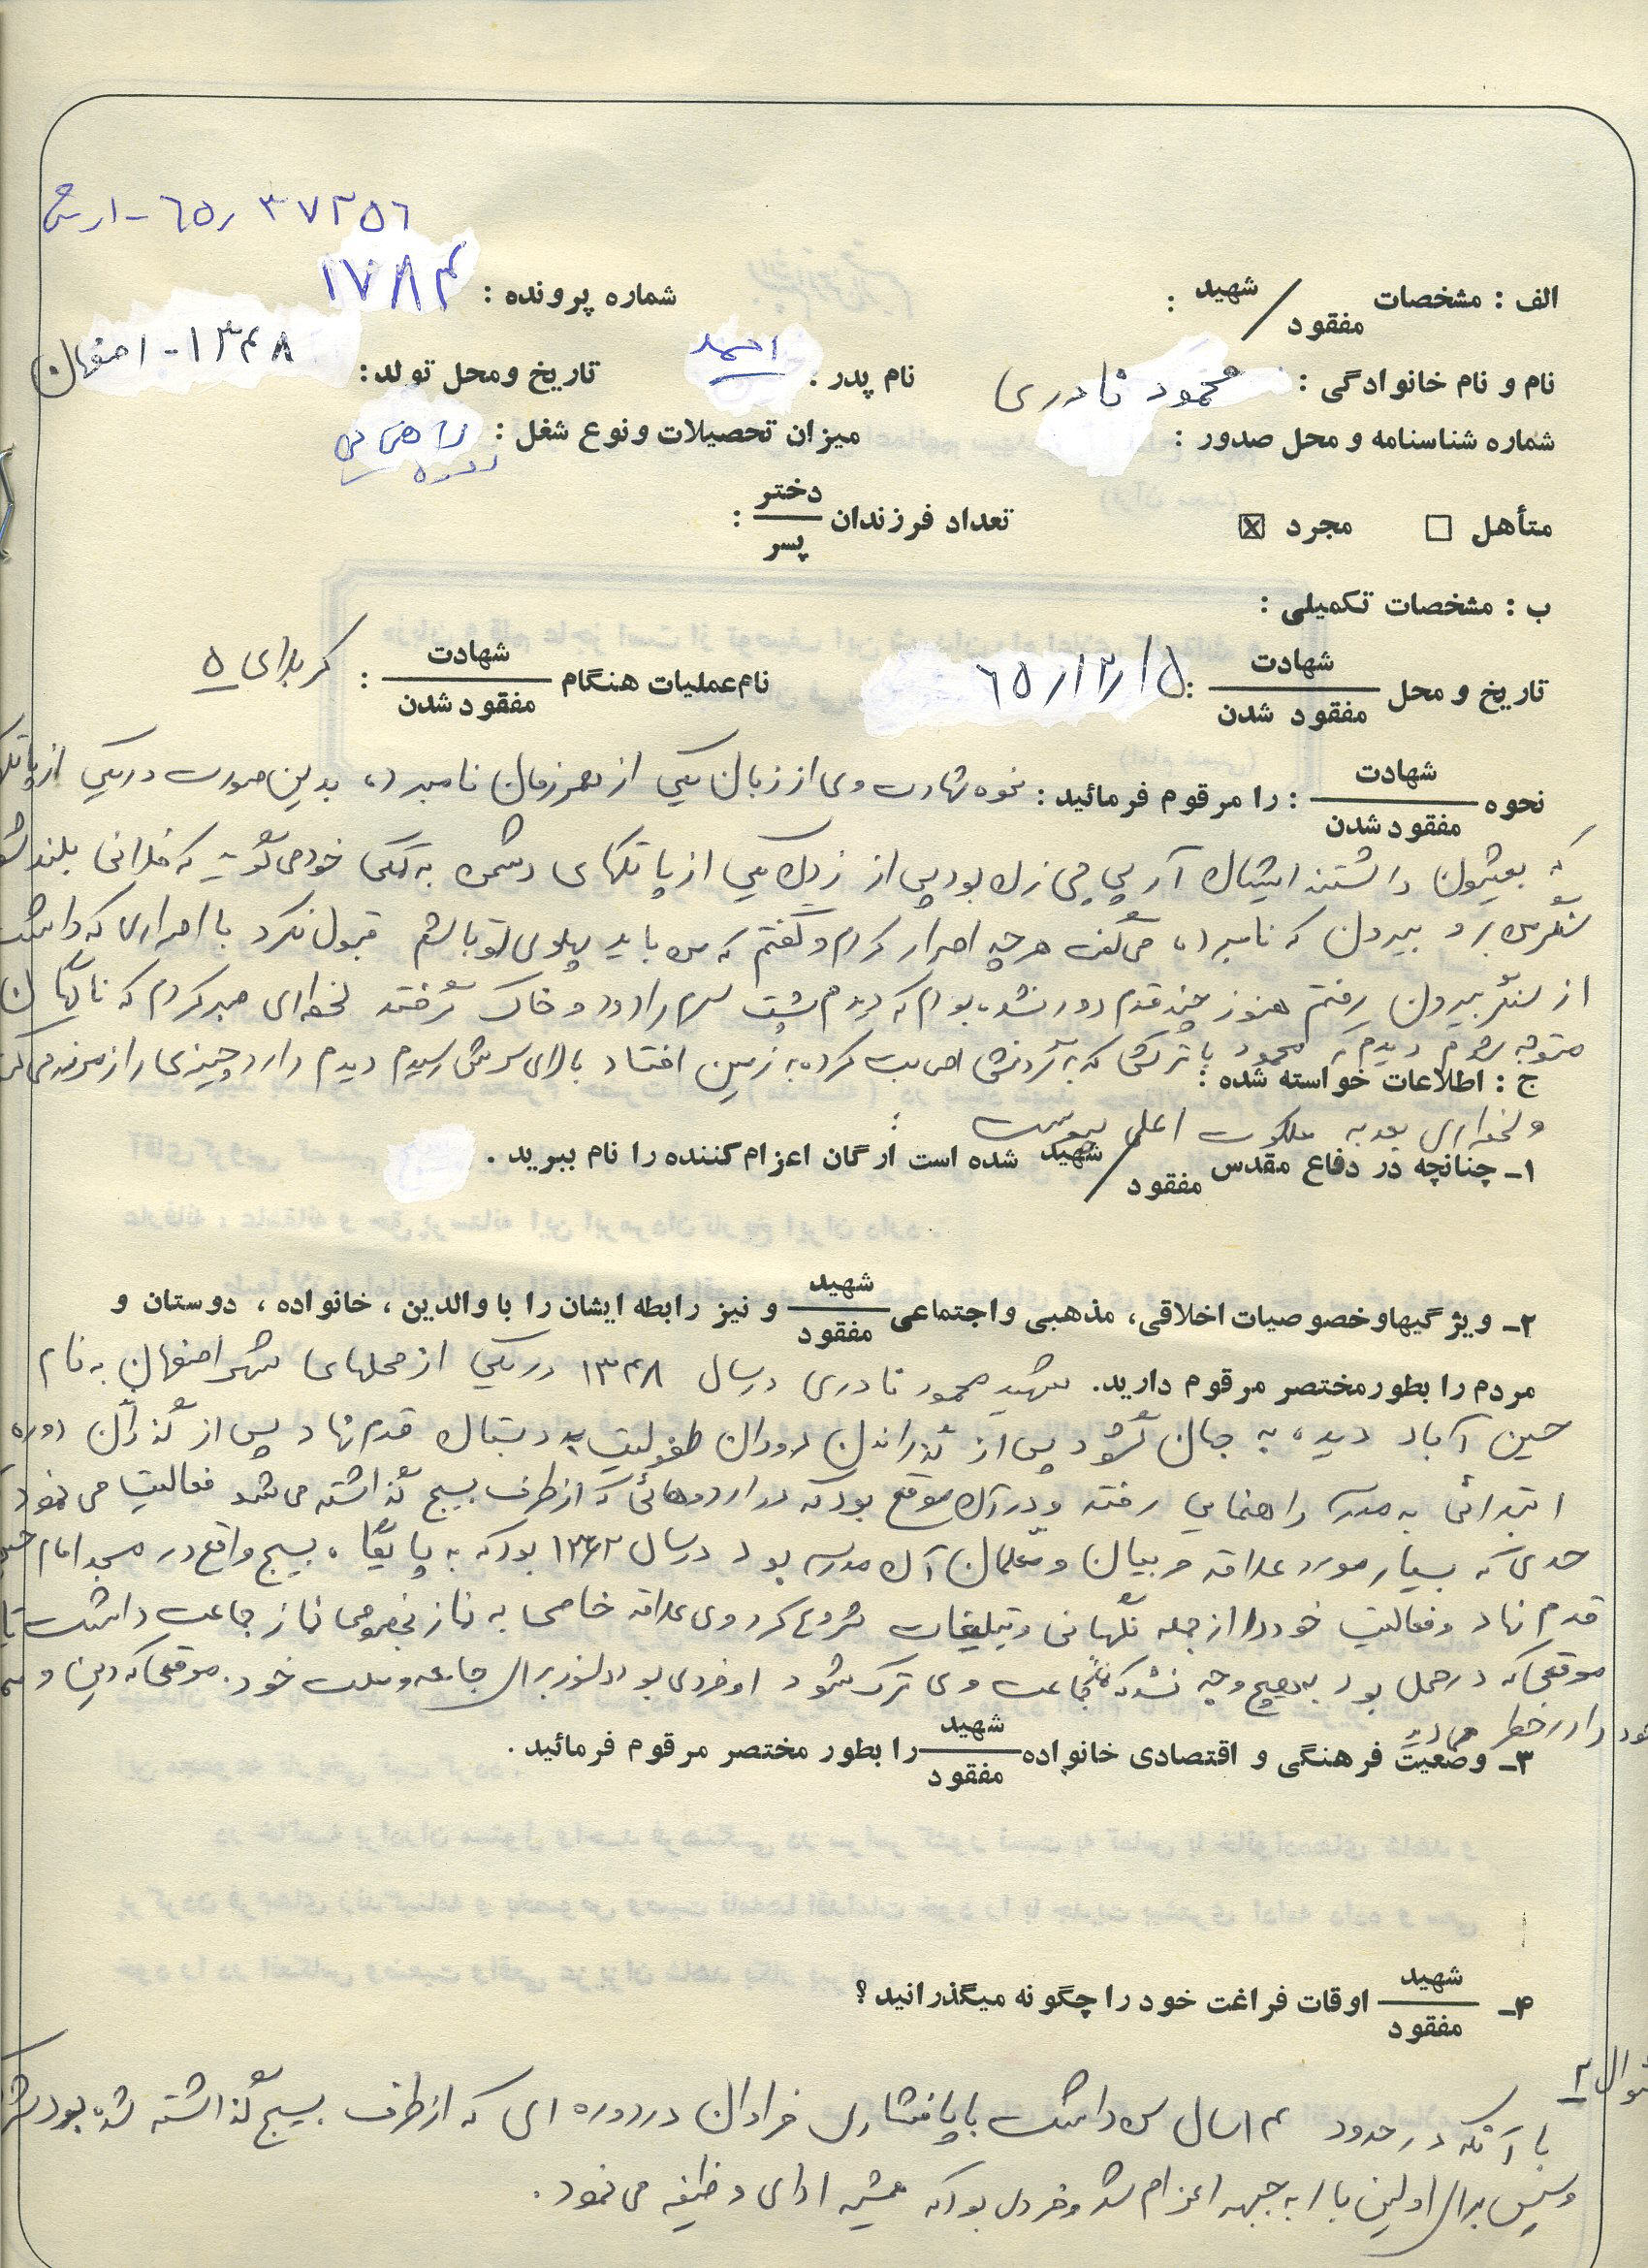 ۶۵٫۳۷۲۵۶ - ار
شماره پرونده : ۱۷۸۴
الف : مشخصات شهید / مفقود :
نام و نام خانوادگی : محمود نادری نام پدر : احمد تاریخ ومحل تولد: ۱۳۴۸ - اصفهان
شماره شناسنامه و محل صدور : میزان تحصیلات ونوع شغل : راهنمایی
متأهل □ مجرد ☒ تعداد فرزندان دختر / پسر :
ب : مشخصات تکمیلی :
تاریخ و محل شهادت / مفقود شدن : ۶۵/۱۲/۵ نام عملیات هنگام شهادت / مفقود شدن : کربلای ۵
نحوه شهادت / مفقود شدن : را مرقوم فرمائید : نحوه شهادت وی از زبان یکی از همرزمان نامبرده بدین صورت در یکی از پاتکها
که بعثیون داشتند ایشان آر پی جی زن بود پس از زدن یکی از پاتکهای دشمن به کمکی خود می گوید که فلانی بلند شو
سنگر برو بیرون که نامبرده می گفت هر چه اصرار کردم و گفتم که من باید پهلوی تو باشم قبول نکرد با اصراری که داشت
از سنگر بیرون رفتم هنوز چند قدم دور نشده بودم که دیدم پشت سرم را دود و خاک گرفته لحظه‌ای صبر کردم که ناگهان
متوجه شدم دیدم که محمود با ترکشی که به گردنش اصابت کرده به زمین افتاد بالای سرش رسیدم دیدم دارد چیزی را زمزمه می
ج : اطلاعات خواسته شده :
و لحظه‌ای بعد به ملکوت اعلی پیوست
۱ـ چنانچه در دفاع مقدس شهید / مفقود شده است ارگان اعزام کننده را نام ببرید .
۲ـ ویژگیهاوخصوصیات اخلاقی، مذهبی واجتماعی شهید / مفقود و نیز رابطه ایشان را با والدین ، خانواده ، دوستان و
مردم را بطور مختصر مرقوم دارید. شهید محمود نادری در سال ۱۳۴۸ در یکی از محلهای شهر اصفهان به نام
حسین آباد دیده به جهان گشود پس از گذراندن دوران طفولیت به دبستان قدم نهاد پس از گذران دوره
ابتدائی به مدرسه راهنمایی رفته و در آن موقع بود که در اردوهائی که از طرف بسیج گذاشته می شد فعالیت می نمود
حدی که بسیار مورد علاقه مربیان و معلمان آن مدرسه بود در سال ۱۳۶۲ بود که به پایگاه بسیج واقع در مسجد امام
قدم نهاد و فعالیت خود را از جمله نگهبانی و تبلیغات شروع کرد وی علاقه خاصی به نماز بخصوص نماز جماعت داشت تا
موقعی که در محل بود به هیچ وجه نشد که نماز جماعت وی ترک شود او فردی بود دلسوز برای جامعه و ملت خود. موقعی که دین و
خود را در خطر می دید
۳ـ وضعیت فرهنگی و اقتصادی خانواده شهید / مفقود را بطور مختصر مرقوم فرمائید .
۴ـ شهید / مفقود اوقات فراغت خود را چگونه میگذرانید ؟
سوال ۲
با آنکه در حدود ۱۴ سال سن داشت با پافشاری فراوان در دوره ای که از طرف بسیج گذاشته شده بود
و سپس برای اولین بار به جبهه اعزام شد و فردی بود که همیشه ادای وظیفه می نمود .